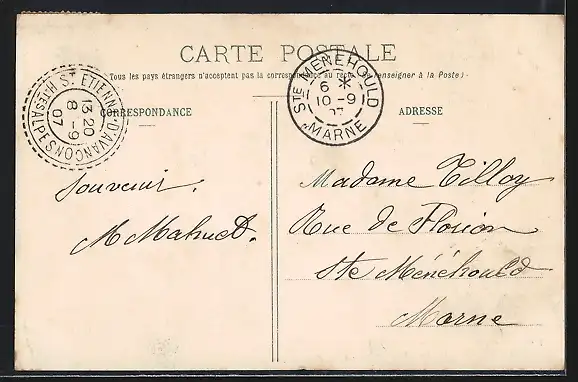 CARTE POSTALE
Tous les pays étrangers n'acceptent pas la correspondance au recto (Se renseigner à la Poste).
CORRESPONDANCE
ADRESSE
ST ETIENNE D'AVANÇON HTES ALPES
13 20
8 -9
07
STE MENEHOULD
6 *
10 -9
07
MARNE
Souvenir.
M Mahuet.
Madame Tilloy
Rue de Florion
Ste Ménéhould
Marne